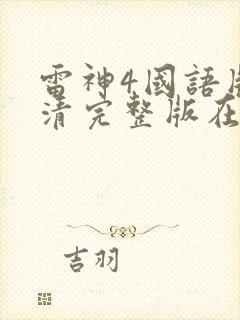 雷神4國語
清完整版在
吉羽